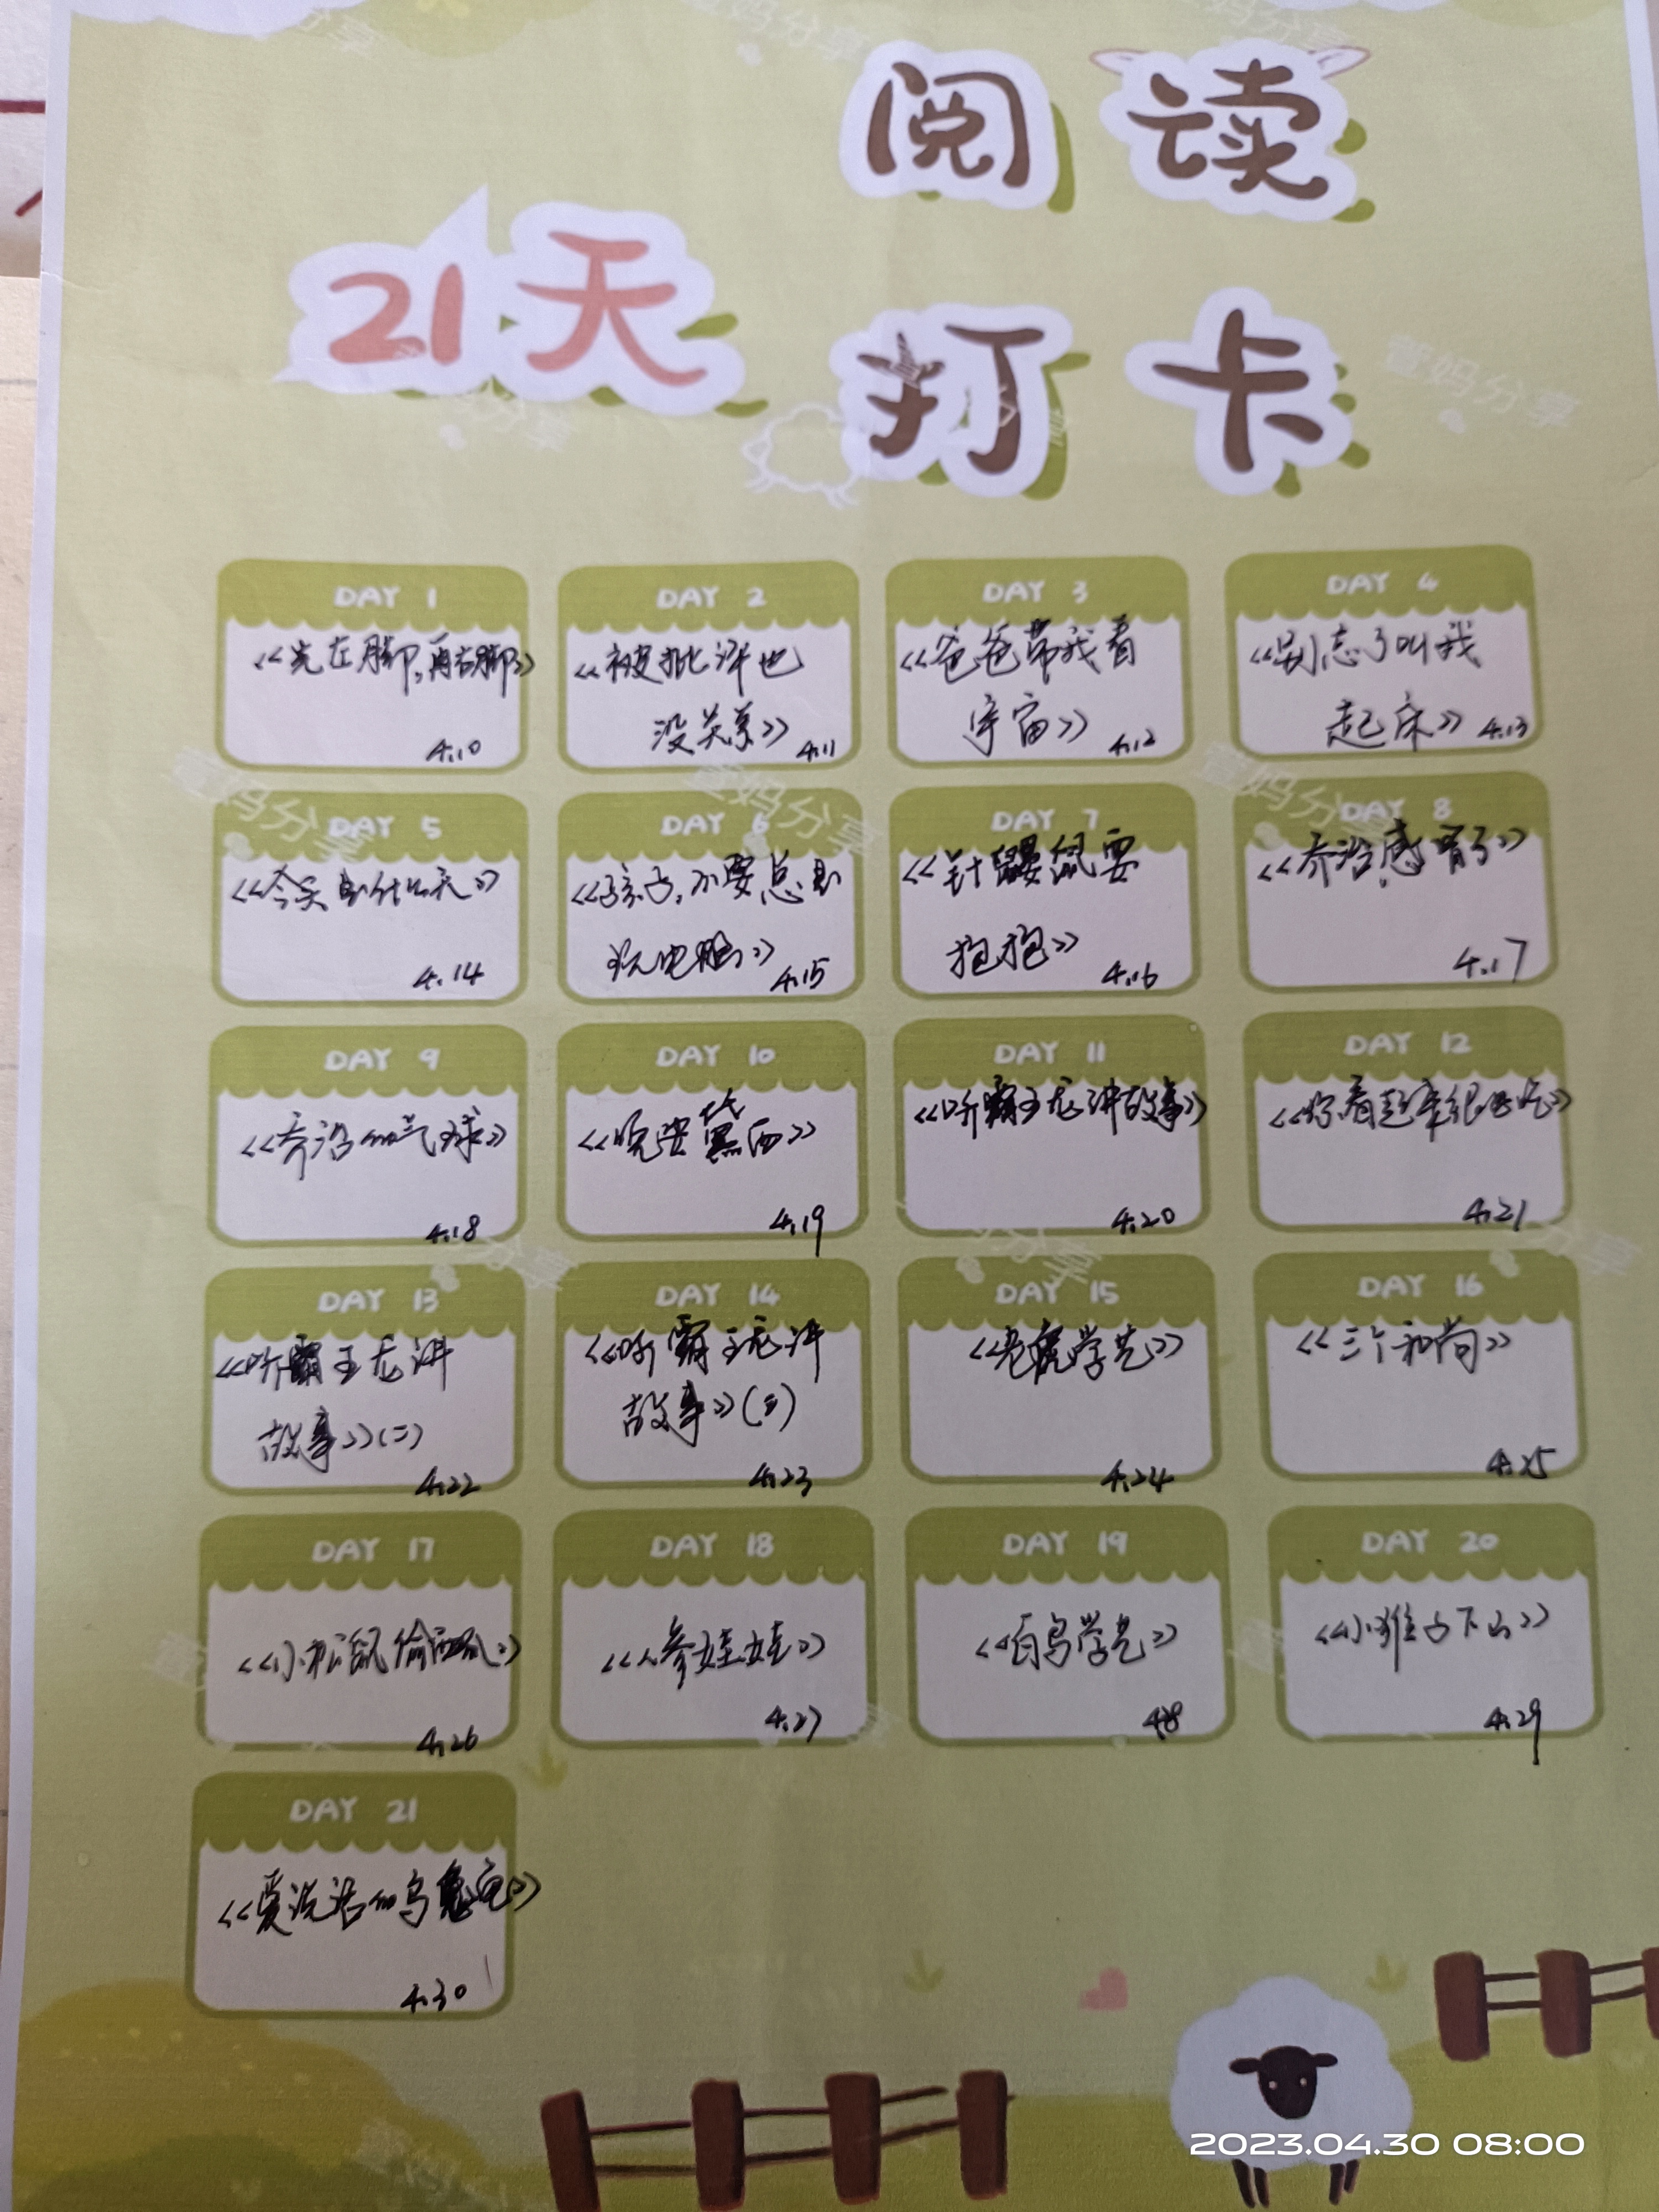 阅读
21天
打卡
DAY 1
《先左脚,再右脚》
4.10
DAY 2
《被批评也
没关系》
4.11
DAY 3
《爸爸带我看
宇宙》
4.12
DAY 4
《别忘了叫我
起床》
4.13
DAY 5
《今天是什么天》
4.14
DAY 6
《孩子,不要总是
玩电脑》
4.15
DAY 7
《针鼹鼠要
抱抱》
4.16
DAY 8
《乔治感冒了》
4.17
DAY 9
《乔治的气球》
4.18
DAY 10
《晚安 西》
4.19
DAY 11
《听霸王龙讲故事》
4.20
DAY 12
《你看起来很好吃》
4.21
DAY 13
《听霸王龙讲
故事》(二)
4.22
DAY 14
《听霸王龙讲
故事》(三)
4.23
DAY 15
《老虎学艺》
4.24
DAY 16
《三个和尚》
4.25
DAY 17
《小松鼠偷西瓜》
4.26
DAY 18
《人参娃娃》
4.27
DAY 19
《百鸟学艺》
4.28
DAY 20
《小猴子下山》
4.29
DAY 21
《爱说话的乌龟》
4.30
萱妈分享
2023.04.30 08:00